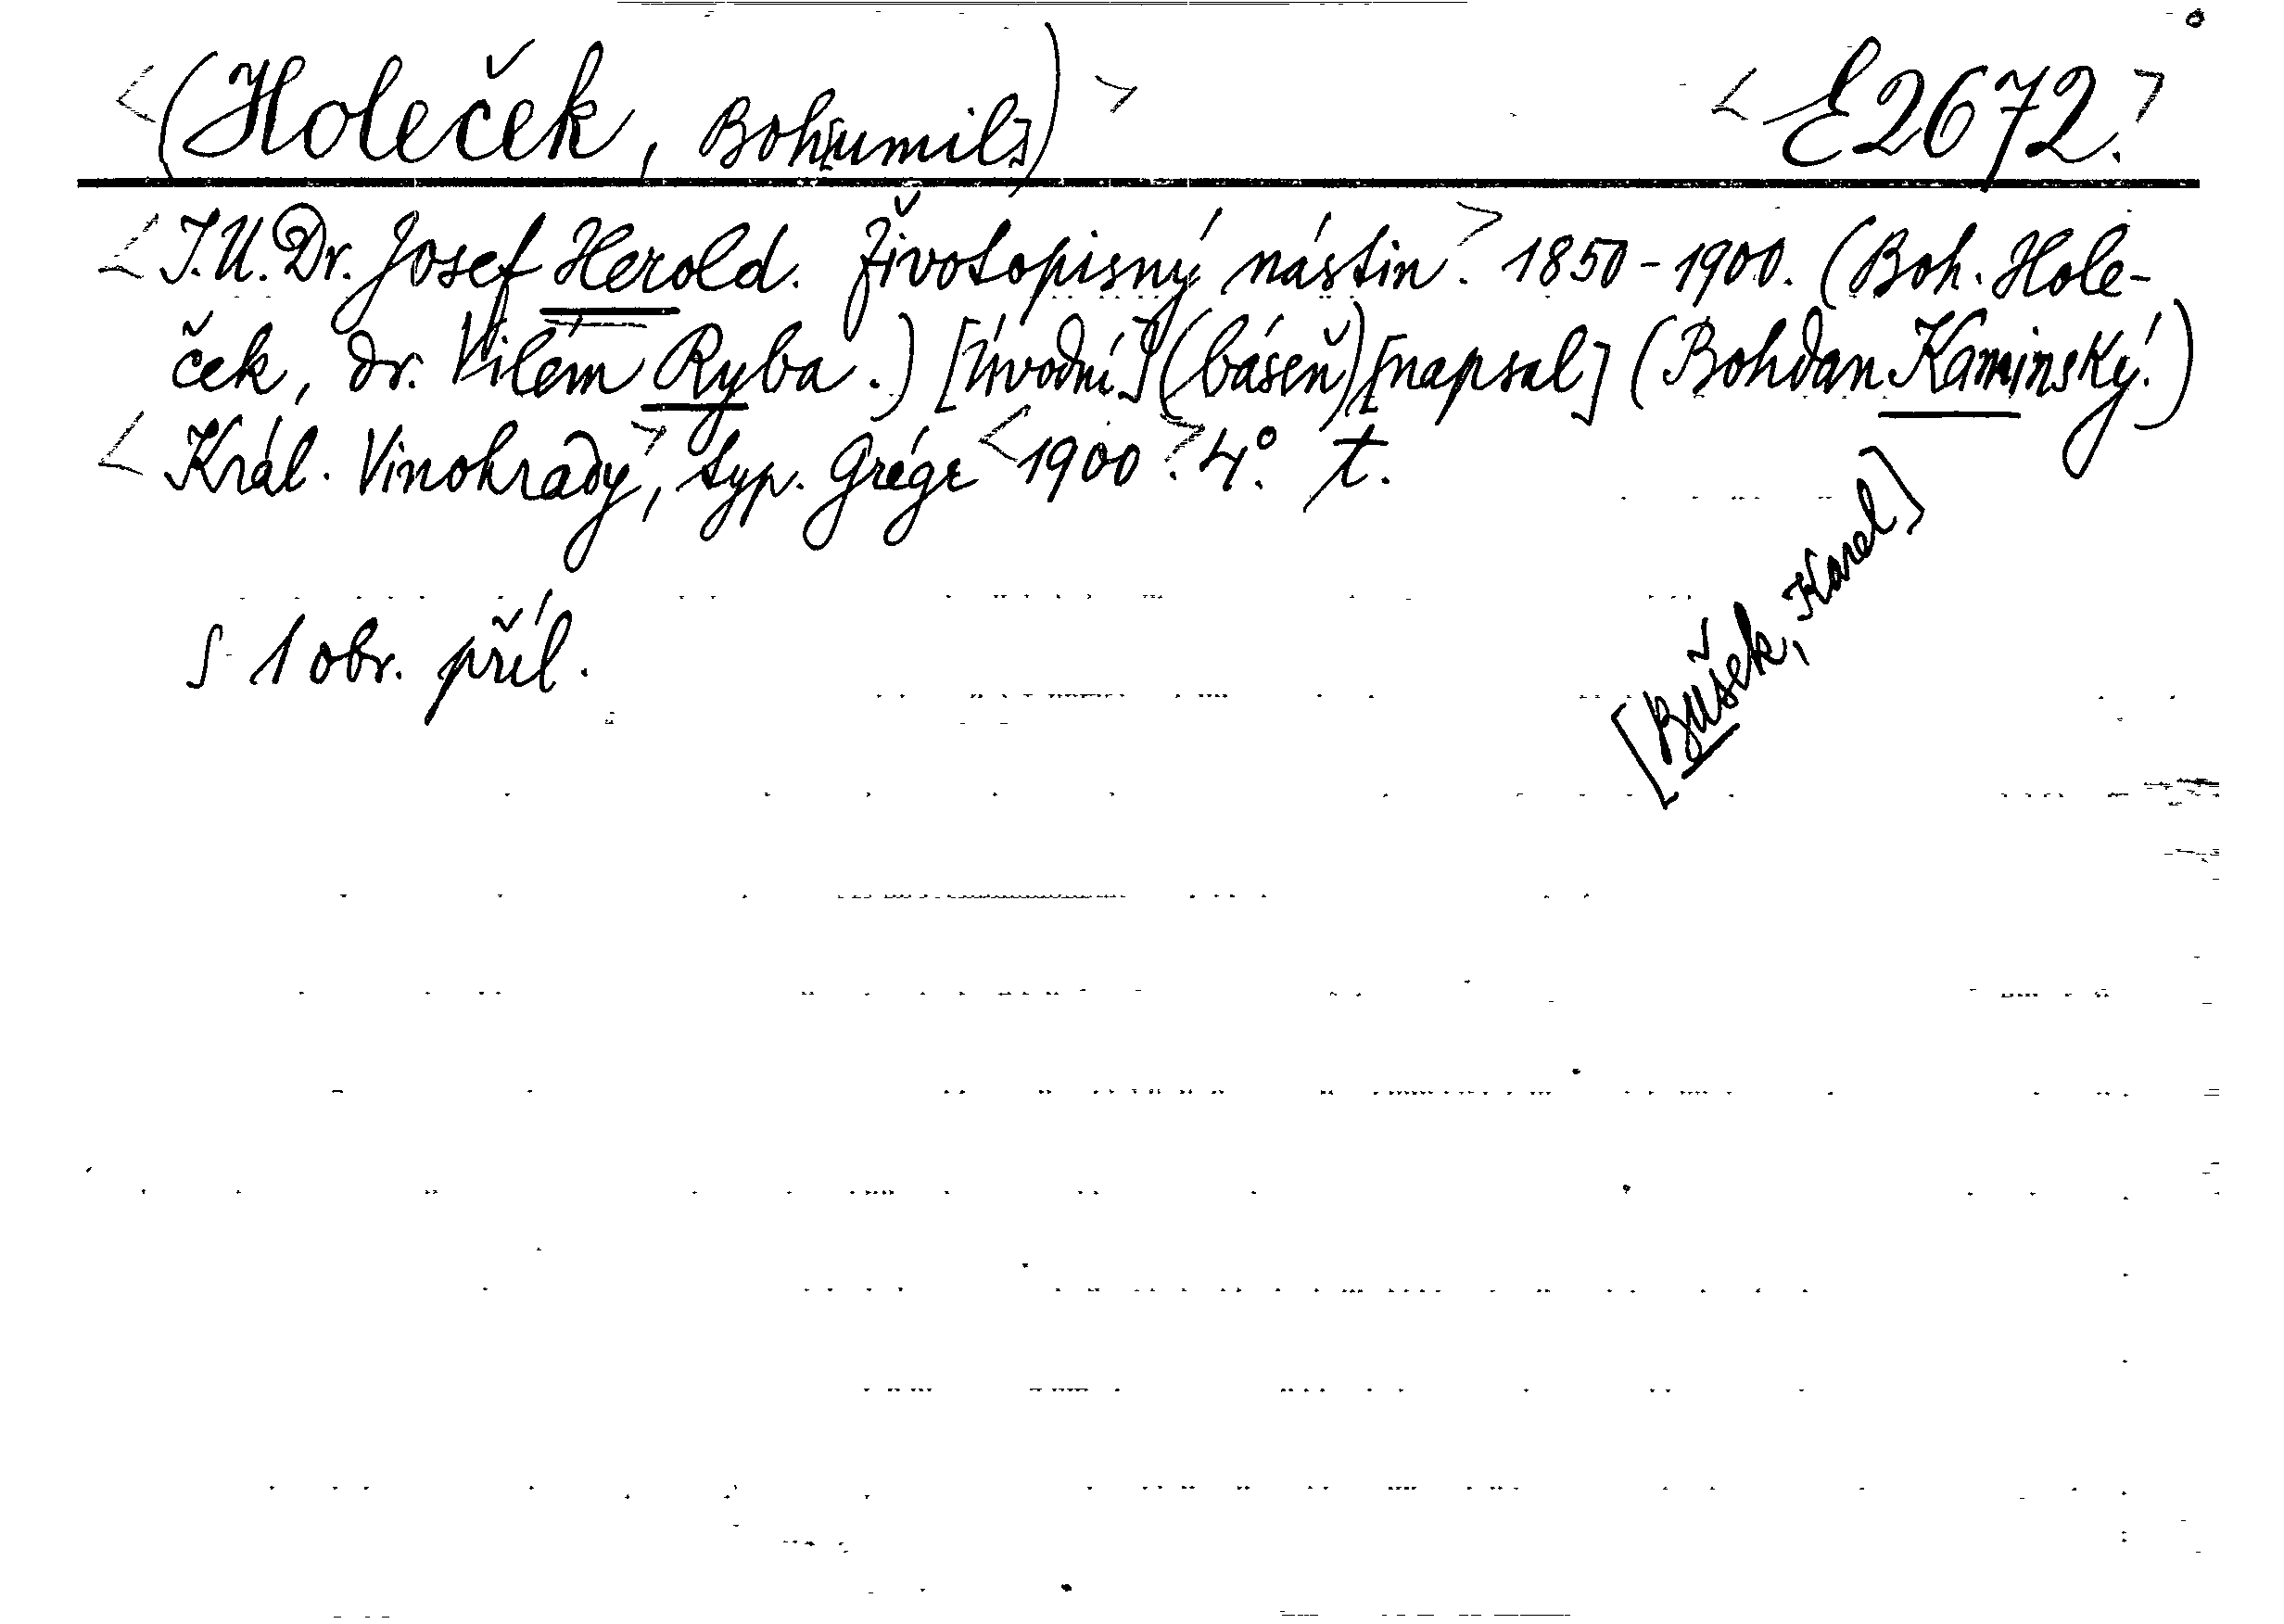 <(Holeček, Boh[umil])> <E2672.>
<J.U.Dr. Josef Herold. Životopisný nástin.> 1850-1900. (Boh. Hole-
ček, dr. Vilém Ryba.) [Úvodní] (báseň) [napsal] (Bohdan Kaminský.)
<Král. Vinohrady>, typ. Grégr <1900.> 4°. t.
S 1 obr. příl.
[Bušek, Karel]